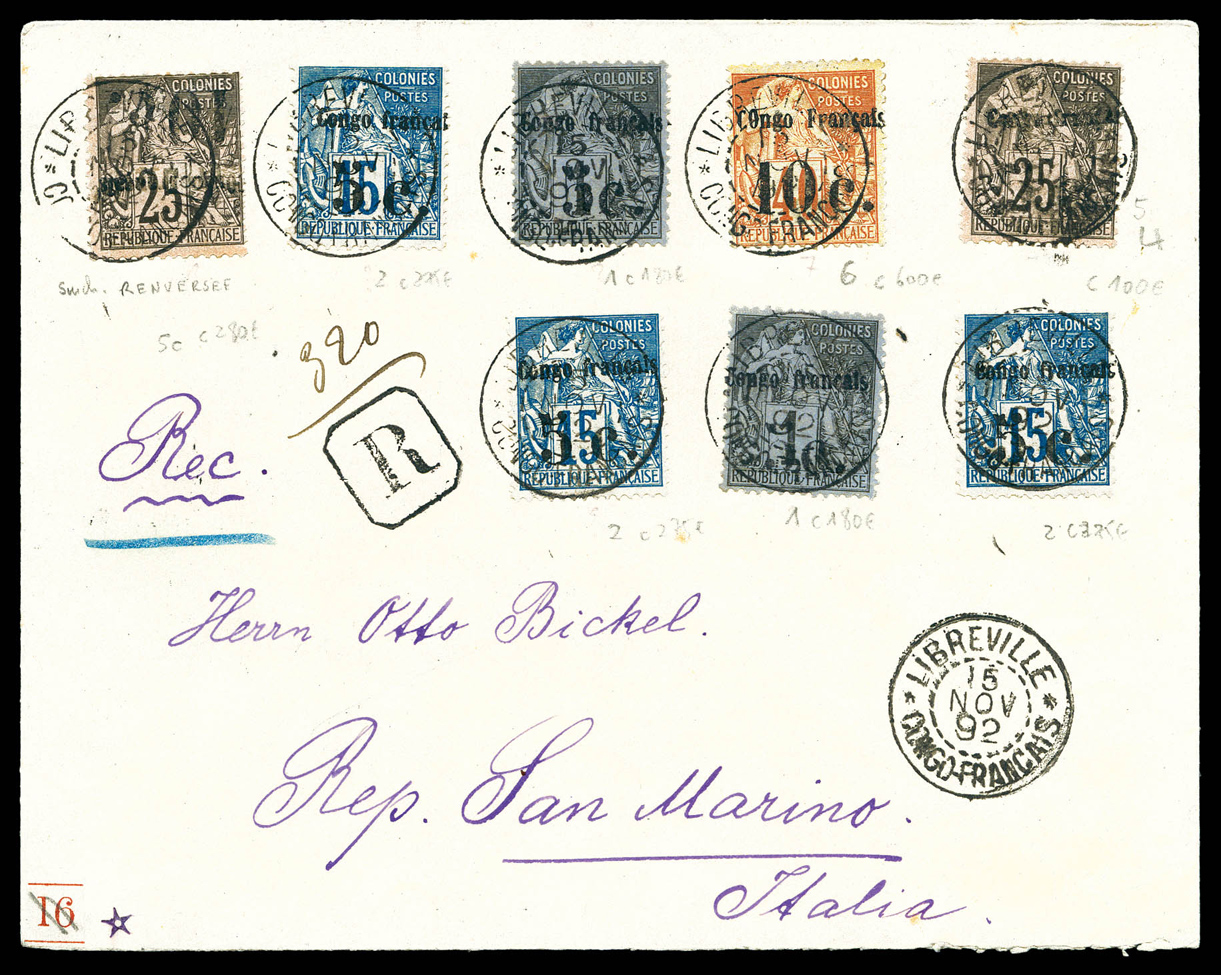 COLONIES
POSTES
25
RÉPUBLIQUE FRANÇAISE
COLONIES
POSTES
Congo français
15
5 c.
RÉPUBLIQUE FRANÇAISE
COLONIES
POSTES
Congo français
1c.
RÉPUBLIQUE FRANÇAISE
COLONIES
POSTES
COngo Français
10 c.
RÉPUBLIQUE FRANÇAISE
COLONIES
POSTES
Congo français
25
RÉPUBLIQUE FRANÇAISE
5
RENVERSEE
2 c 225€
1 c 180€
6 c 600€
C 100€
5c c 280€
320
COLONIES
POSTES
Congo français
15
5 c.
RÉPUBLIQUE FRANÇAISE
COLONIES
POSTES
Congo français
1c.
RÉPUBLIQUE FRANÇAISE
COLONIES
POSTES
Congo français
15
5 c.
RÉPUBLIQUE FRANÇAISE
Réc.
R
2 c 225€
1 c 180€
2 c 225€
Herrn Otto Bickel.
* LIBREVILLE *
15
NOV
92
CONGO-FRANÇAIS
Rep. San Marino.
Italia.
16